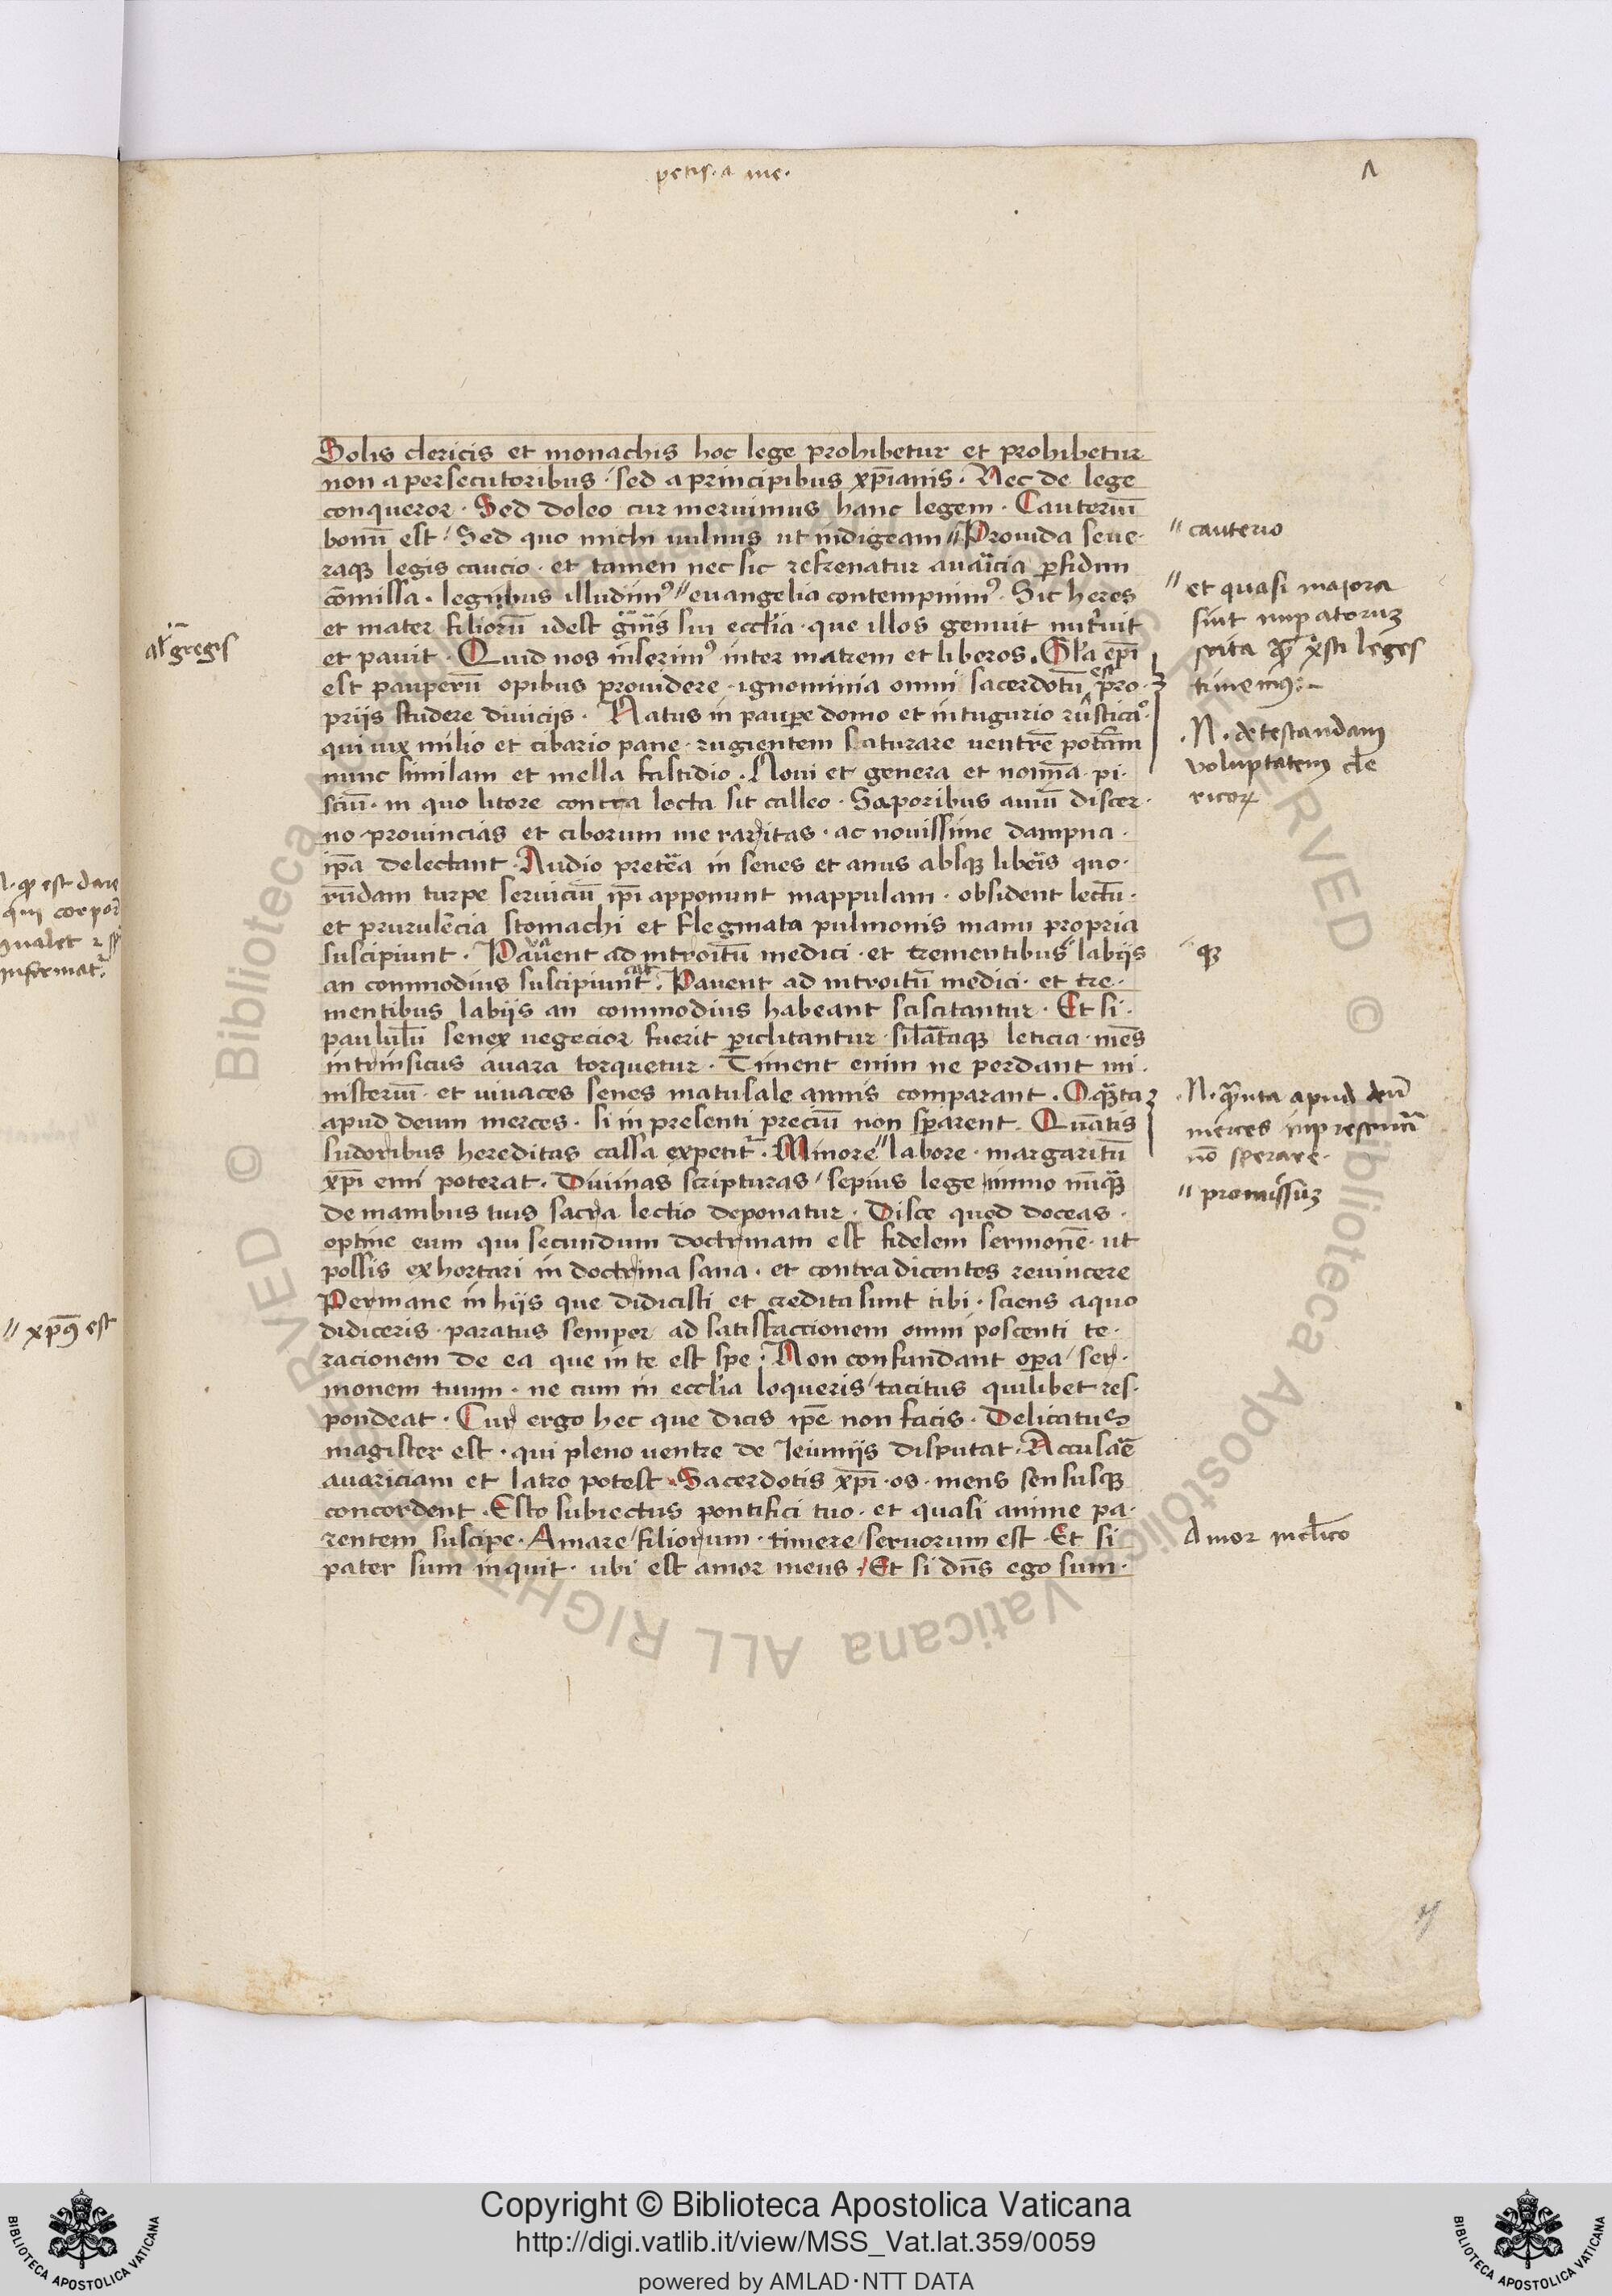 petis · a me ·
Solis clericis et monachis hoc lege prohibetur et prohibetur
non a persecutoribus · sed a principibus xp̄ianis · Nec de lege
conqueror · Sed doleo cur meruimus hanc legem · Cauteriū
bonū est / Sed quo michi uulnus ut indigeam // Prouida seue-
raqꝫ legis caucio · et tamen nec sic refrenatur auaricia ꝑ fidum
cōmissa · legibus illudimꝰ // euangelia contempnimꝰ · Sit heres
et mater filiorū idest
et pauit · Quid nos inserimꝰ inter matrem et liberos · Gl̄ia ep̄i
est pauperū opibus prouidere · ignominia omni sacerdotū est pro-
priis studere diuiciis · Natus in paupe domo et in tugurio rusticaꝰ ·
qui uix milio et cibario pane · rugientem saturare uentrē
nunc similam et mella fastidio · Noui et genera et nom̄a · pi-
sciū · in quo litore concra lecta sit calleo · Saporibus auiū discer-
no prouincias et ciborum me raritas · ac nouissime dampna ·
ip̄a delectant · Audio pretea in senes et anus absqꝫ libeis quo-
rūdam turpe seruiciū ip̄i apponunt mappulam · obsident lectū ·
et prurulēcia stomachi et flegmata pulmonis manu propria
suscipiunt · Pauent ad introitū medici · et trementibus labiis
an commodius suscipiunt · Pauent ad introitū medici · et tre-
mentibus labiis an commodius habeant sciscitantur · Et si ·
paululū senex uegecior fuerit ꝑiclitantur · leticia · mēs
intrinsicus auara torquetur · Timent enim ne perdant mi-
nisteriū · et uiuaces senes matusale annis comparant · O
apud deum merces · si in presenti preciū non sꝑarent · Quātis
sudoribus hereditas cassa expetit · Minore // labore · margaritū
xp̄i emi poterat · Diuinas scripturas / sepius lege immo nūqᷓ
de manibus tuis sacra lectio deponatur · Disce quod doceas ·
optine eum qui secundum doctrinam est fidelem sermonē · ut
possis exhortari in doctrina sana · et contradicentes reuincere
Permane in hiis que didicisti et credita sunt tibi · sciens a quo
didiceris · paratus semper ad satisfaccionem omni poscenti te ·
racionem de ea que in te est spe · Non confundant oꝑa / ser-
monem tuum · ne cum in eccl̄ia loqueris / tacitus quilibet res-
pondeat · Cur ergo hec que dicis ip̄e non facis · Delicatus
magister est · qui pleno uentre de Ieiuniis disputat · Accusaē
auariciam et latro potest · Sacerdotis xp̄i · os · mens sensusqꝫ
concordent · Esto subiectus pontifici tuo · et quasi anime pa-
rentem suscipe · Amare / filiorum · timere / seruorum est · Et si
pater sum inquit · ubi est amor meus · Et si dn̄s ego sum ·
al gregis
// cauterio
// et quasi majora
sint imꝑatorum
scita xp̄sti leges
timemꝰ
· N · detestandam
voluptatem cle
ricoꝝ
qꝫ
· N · apud deū
merces in presenti
nō sperare ·
// promissum
Amor
// xp̄ꝰ est
Copyright © Biblioteca Apostolica Vaticana
http://digi.vatlib.it/view/MSS_Vat.lat.359/0059
powered by AMLAD·NTT DATA
BIBLIOTECA APOSTOLICA VATICANA
BIBLIOTECA APOSTOLICA VATICANA